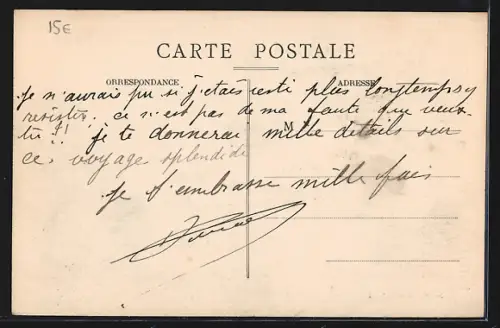 15€
CARTE POSTALE
ORRESPONDANCE ADRESSE
Je n'aurais pu si j'étais resti plus longtemps y
resister. ce n'est pas de ma faute que veux-
tu !! je te donnerai mille details sur
M
ce voyage splendide
Je t'embrasse mille fois